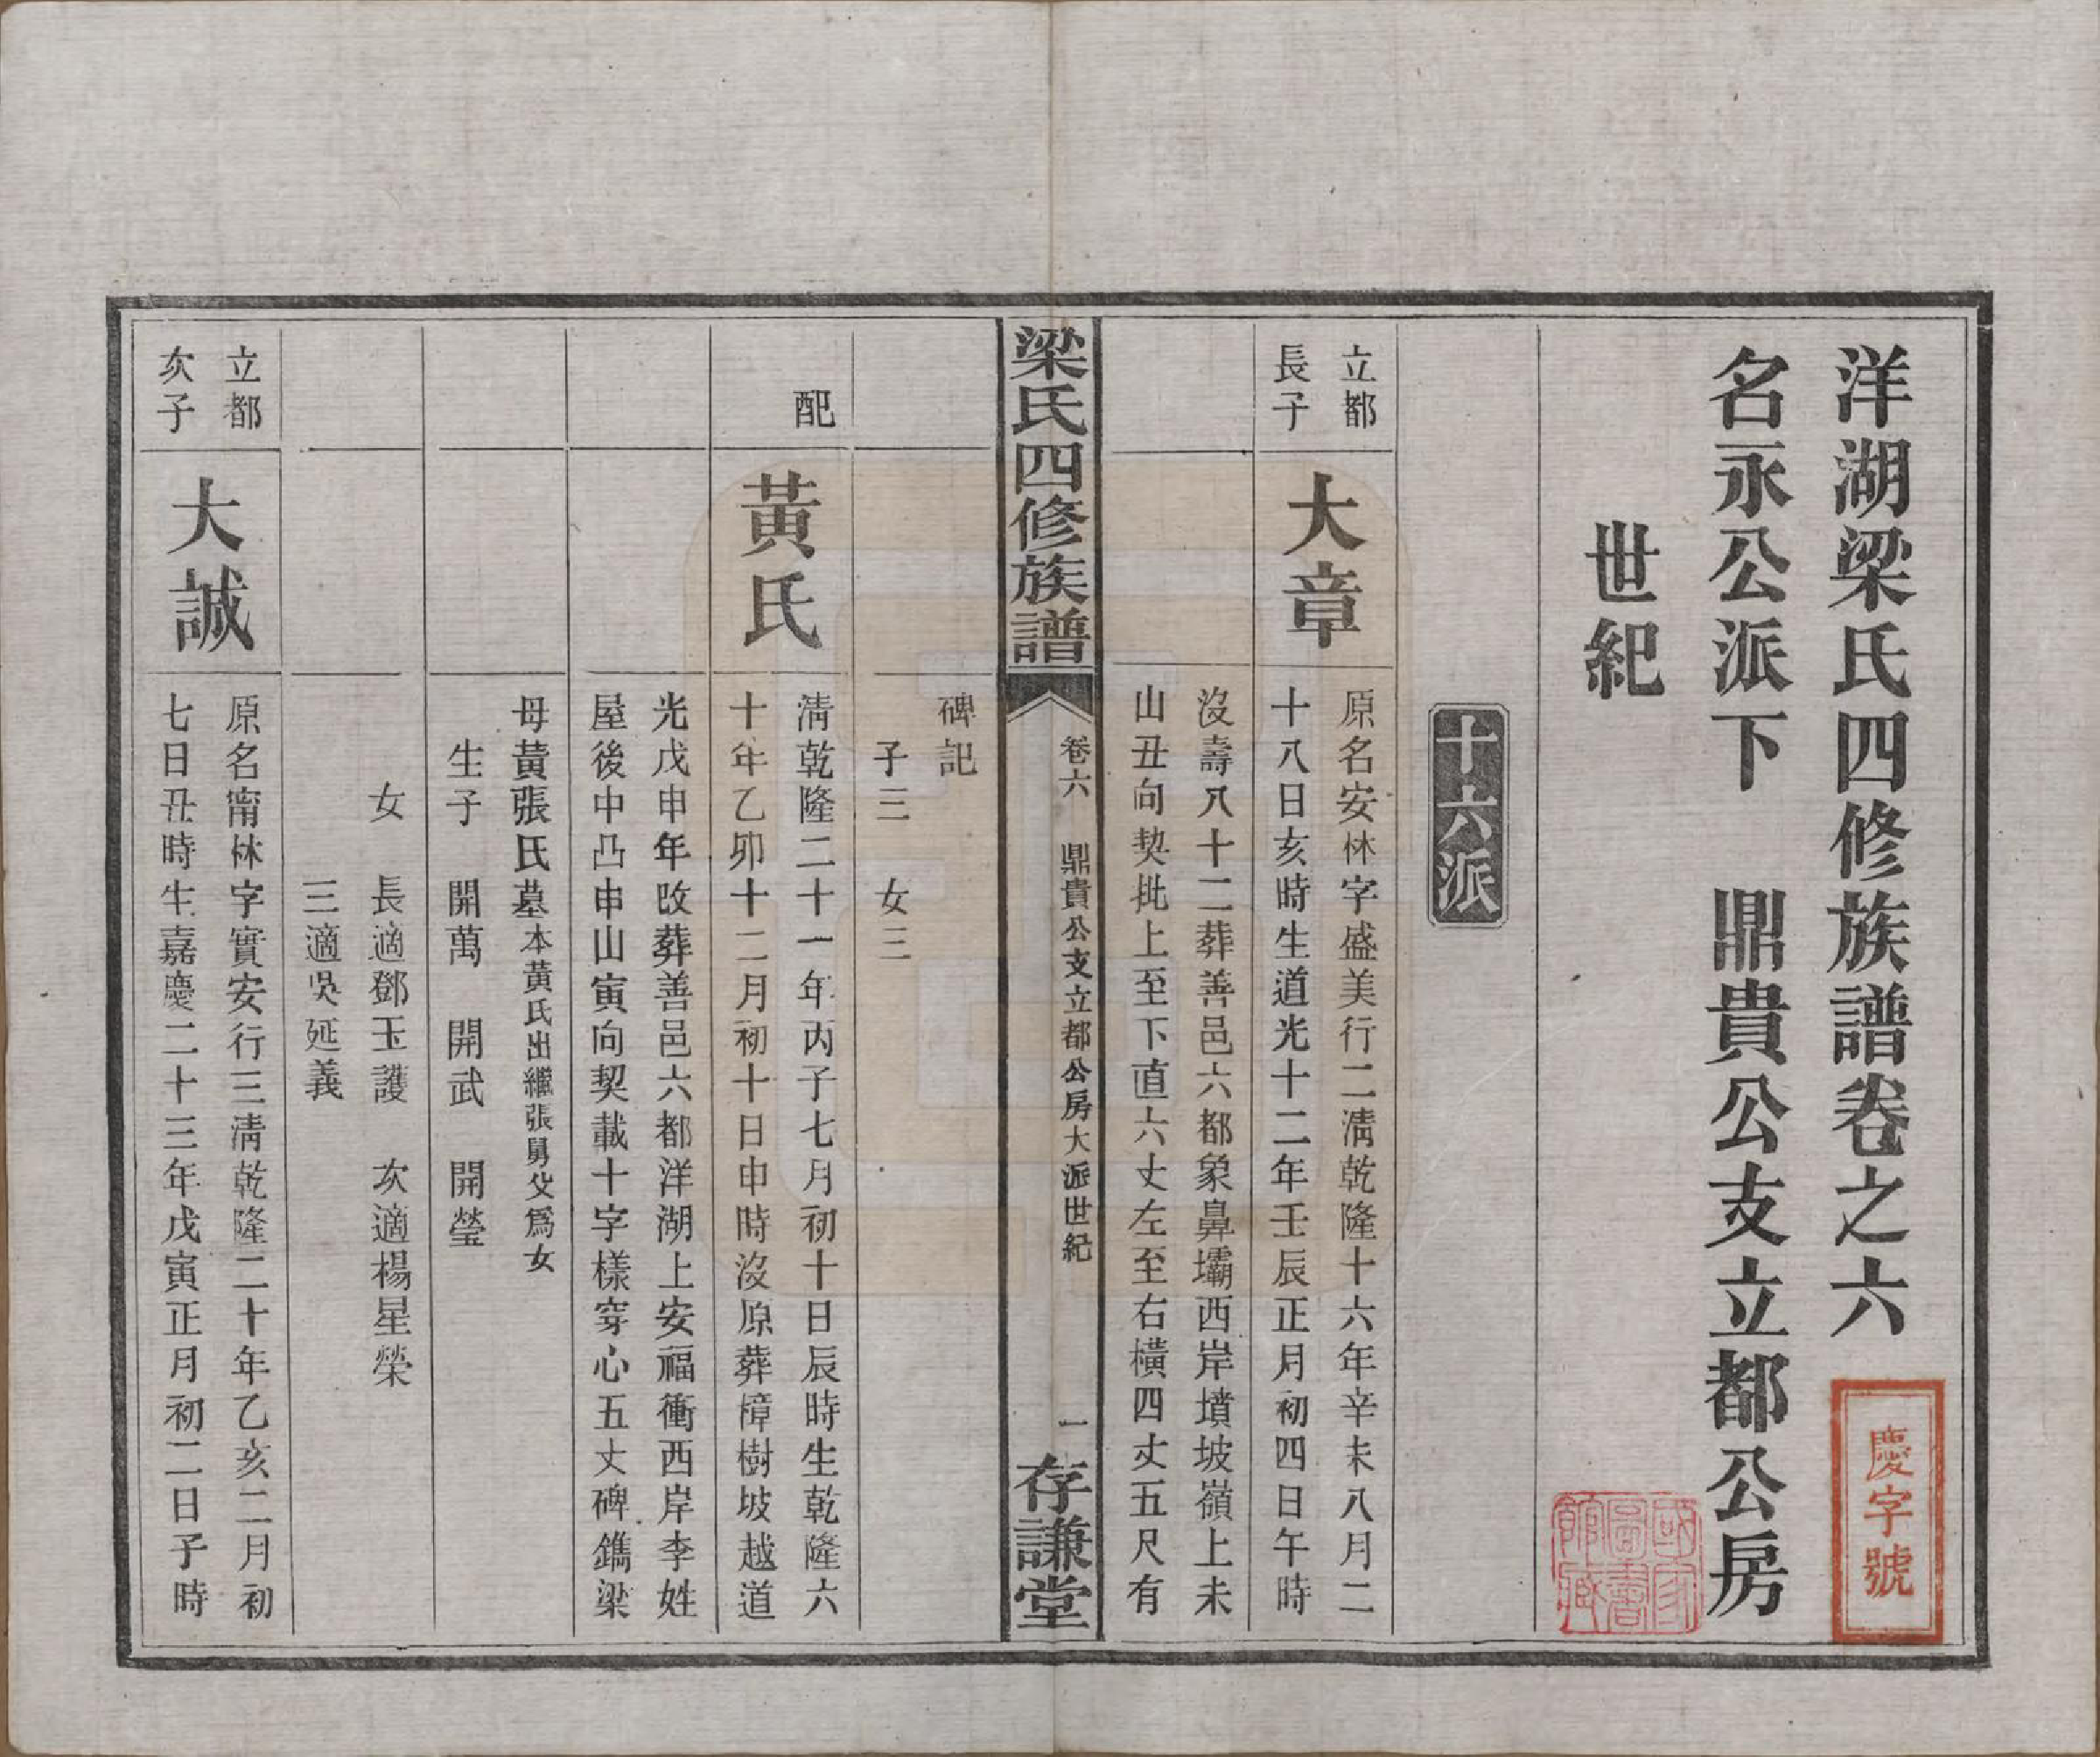 洋湖梁氏四修族譜卷之六
慶字號
名永公派下　鼎貴公支立都公房
國家圖書館藏
世紀
十六派
立都
長子
大章
原名安牀字盛美行二淸乾隆十六年辛未八月二
十八日亥時生道光十二年壬辰正月初四日午時
沒壽八十二葬善邑六都象鼻壩西岸墳坡嶺上未
山丑向契批上至下直六丈左至右橫四丈五尺有
梁氏四修族譜
卷六　鼎貴公支立都公房大派世紀
一
存謙堂
碑記
子三　女三
配
黃氏
淸乾隆二十一年丙子七月初十日辰時生乾隆六
十年乙卯十二月初十日申時沒原葬樟樹坡越道
光戊申年改葬善邑六都洋湖上安福衝西岸李姓
屋後中凸申山寅向契載十字樣穿心五丈碑鐫梁
母黃張氏墓本黃氏出繼張舅父爲女
生子　開萬　開武　開瑩
女　長適鄧玉護　次適楊星榮
三適吳延義
立都
次子
大誠
原名甯牀字實安行三淸乾隆二十年乙亥二月初
七日丑時生嘉慶二十三年戊寅正月初二日子時